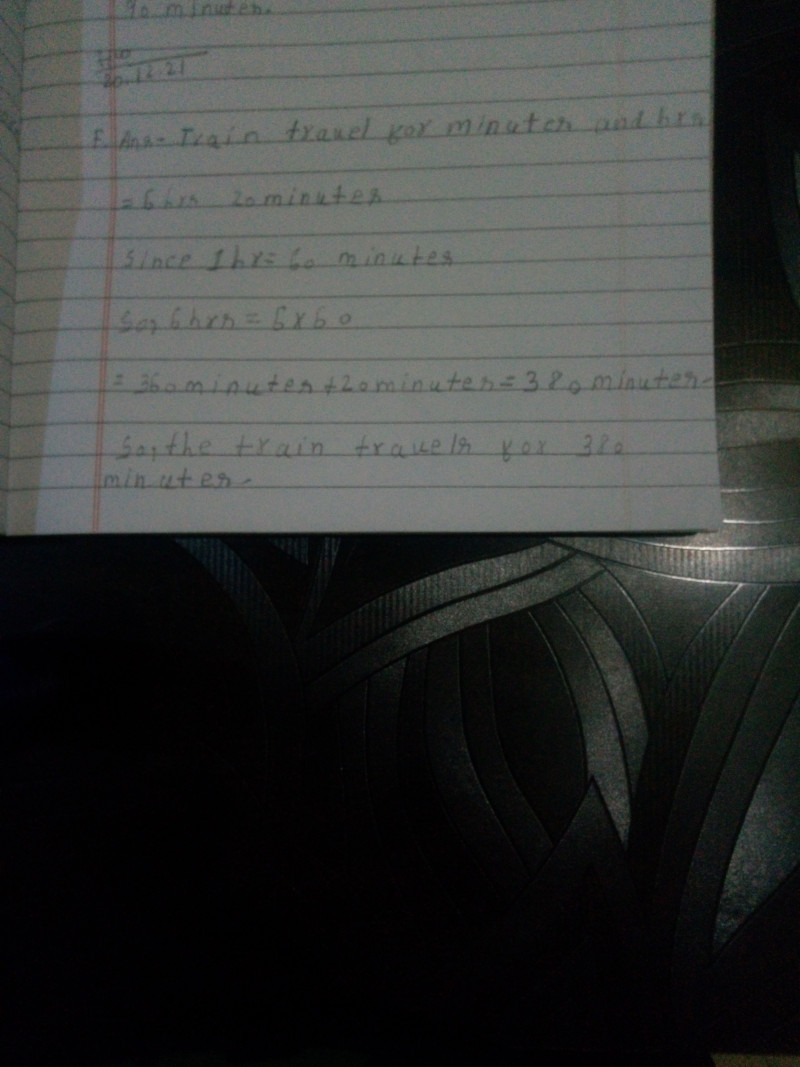 90 minutes.
20.12.21
F. Ans- Train travel for minutes and hrs
= 6 hrs 20 minutes
Since 1 hr = 60 minutes
So, 6 hrs = 6 x 60
= 360 minutes + 20 minutes = 380 minutes.
So, the train travels for 380
minutes.